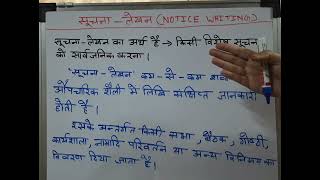 सूचना - लेखन (NOTICE WRITING)
सूचना-लेखन का अर्थ है → किसी विशेष सूचना
को सार्वजनिक करना।
'सूचना - लेखन' कम-से-कम शब्दों
औपचारिक शैली में लिखि संक्षिप्त जानकारी
होती है।
इसके अन्तर्गत किसी सभा, बैठक, गोष्ठी,
कार्यशाला, नामादि परिवर्तन या अन्य विनिमय का
विवरण दिया जाता है।